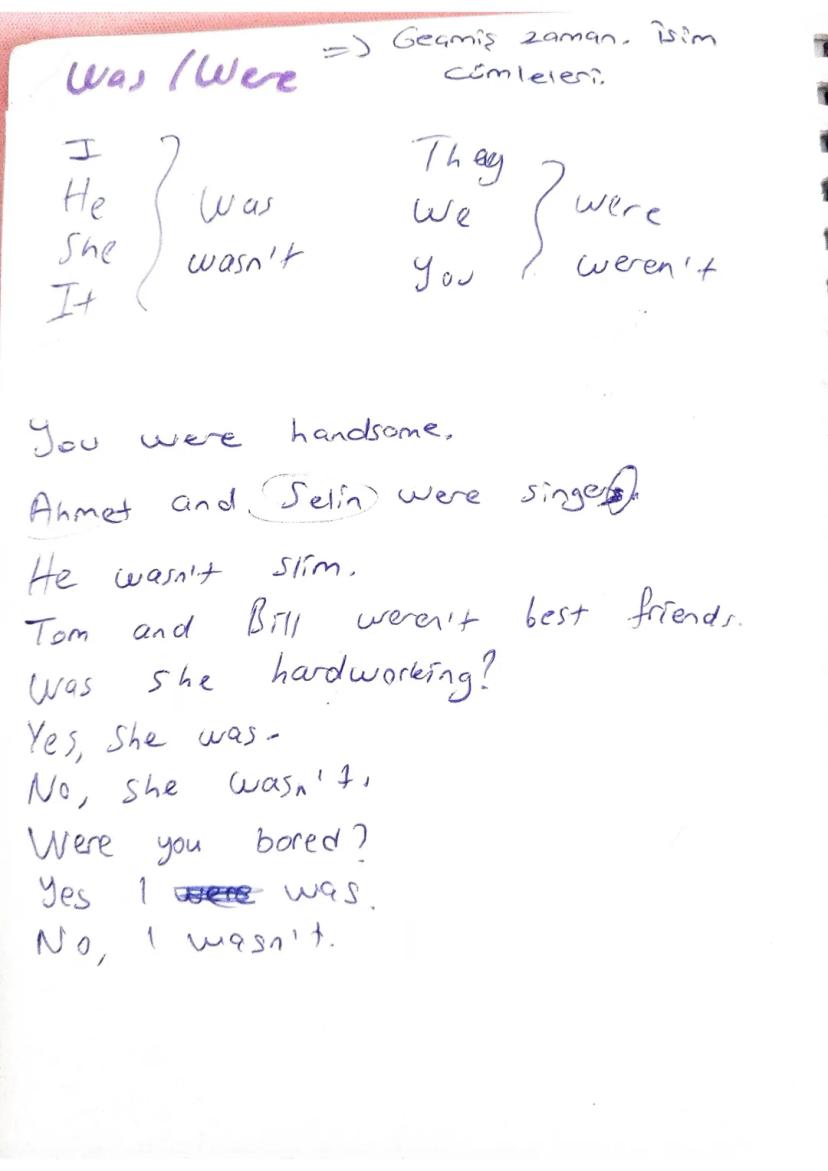 Was / Were => Geçmiş zaman. İsim
cümleleri.
I
He
She
It
was
wasn't
They
We
You
were
weren't
You were handsome.
Ahmet and Selin were singers.
He wasn't slim.
Tom and Bill weren't best friends.
Was she hardworking?
Yes, she was.
No, she wasn't.
Were you bored?
Yes I were was.
No, I wasn't.